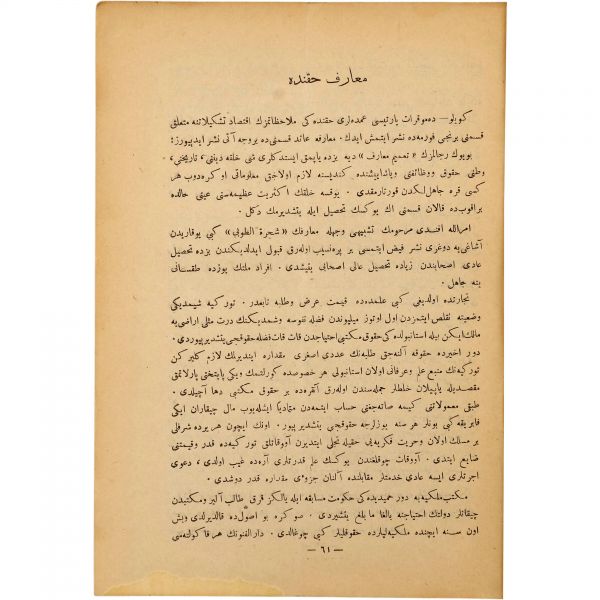 معارف حقنده
كويلو — ده‌موقرات پارتيسى عمده‌لرى حقنده كى ملاحظاتمزك اقتصاد تشكيلاتنه متعلق
قسمنى برنجى فورمه‌ده نشر ايتمش ايدك. معارفه عائد قسمنى ده بروجه آتى نشر ايديورز:
بويوك رجالمزك « تعميم معارف » ديه بزده ياپمق ايستدكلرى شى خلقه دينى، تاريخى،
وطنى حقوق ووظائفنى وياشايشنده كنديسنه لازم اولاجق معلوماتى اوكره‌دوب هر
كسى قره جاهللكدن قورتارمقدى. يوقسه خلقك اكثريت عظيمه‌سنى عينى حالده
براقوب‌ده قالان قسمنى اك يوكسك تحصيل ايله يتشديرمك دكل.
امرالله افندى مرحومك تشبيهى وجهله معارفك « شجرة الطوبى » كبى يوقاريدن
آشاغى‌يه دوغرى نشر فيض ايتمسى بر پره‌نسيپ اوله‌رق قبول ايدلديكندن بزده تحصيل
عادى اصحابندن زياده تحصيل عالى اصحابى يتيشدى. افراد ملتك يوزده طقسانى
ينه جاهل.
تجارتده اولديغى كبى علمده‌ده قيمت عرض وطلبه تابعدر. توركيه شيمديكى
وضعيتنه تقلص ايتمزدن اول اوتوز ميليوندن فضله نفوسه وشمديكنك درت مثلى اراضى‌يه
مالك ايكن بيله استانبولده‌كى حقوق مكتبى احتياجدن قات قات فضله حقوقجى يتشديرييوردى.
دور اخيرده حقوقه آلنه‌جق طلبه‌نك عددى اصغرى مقداره اينديرلمك لازم كلير كن
توركيه‌نك منبع علم وعرفانى اولان استانبولى هر خصوصده كورلتمك ويكى پايتختى پارلاتمق
مقصديله ياپيلان خلطلر جمله‌سندن اوله‌رق آنقره‌ده بر حقوق مكتبى دها آچيلدى.
طبق معمولاتنى كيمه صاته‌جغنى حساب ايتمه‌دن متماديا ايشله‌يوب مال چيقاران ايكى
فابريقه كبى بونلر هر سنه يوزلرجه حقوقجى يتشديرييور. اونك ايچون هر يرده شرفلى
بر مسلك اولان وحريت فكريه‌يى حقيله تجلى ايتديرن آووقاتلق توركيه‌ده قدر وقيمتنى
ضايع ايتدى. آووقات چوقلغندن يوكسك علم قدرتلرى آره‌ده غيب اولدى، دعوى
اجرتلرى ايسه عادى خدمتلر مقابلنده آلنان جزوى مقداره قدر دوشدى.
مكتب ملكيه‌يه دور حميديده‌كى حكومت مسابقه ايله يالكز قرق طالب آلير ومكتبدن
چيقانلر دولتك احتياجنه بالغا ما بلغ يتشيردى. صوكره بو اصول‌ده قالديرلدى وبش
اون سنه ايچنده ملكيه‌ليلرده حقوقليلر كبى چوغالدى. دارالفنونك هر فاكولته‌سى
— ٦١ —